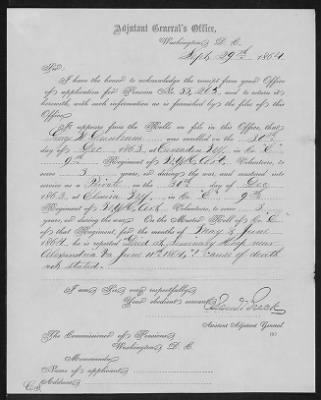 Adjutant General's Office,
Washington, D. C.
Sept. 29th, 1864.
Sir:
I have the honor to acknowledge the receipt from your Office
of application for Pension No.
and to return it
herewith, with such information as is furnished by the files of this
Office.
It appears from the Rolls on file in this Office, that
was enrolled on the 30th
day of Dec, 1863, at
in Co. "E"
9th Regiment of N.Y. H. Art. Volunteers, to
serve 3 years, or during the war, and mustered into
service as a Private on the 30th day of Dec
1863, at Elmira N.Y., in Co. E 9th
Regiment of N.Y. H. Art. Volunteers, to serve 3
years, or during the war. On the Muster Roll of Co. "E"
of that Regiment, for the months of May & June
1864, he is reported Died at Hosp near
Alexandria Va June 1864, cause of death
not stated.
I am Sir, very respectfully,
Your obedient servant,
Assistant Adjutant General
The Commissioner of Pensions,
Washington, D. C.
Memoranda:
Name of applicant,
Address,